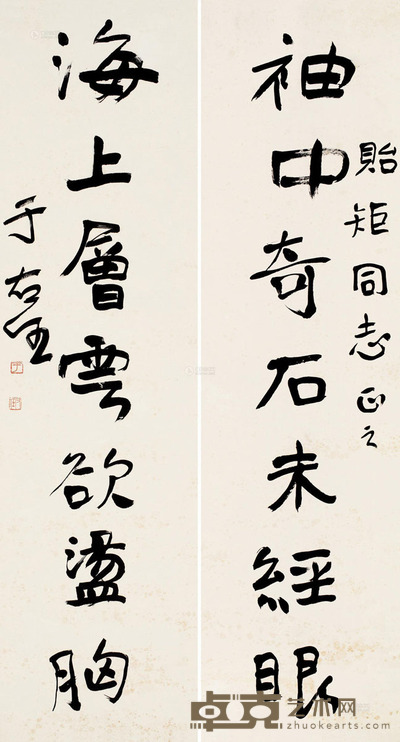 貽矩同志正之
袖中奇石未經眼
海上層雲欲盪胸
于右任
卓克艺术网
zhuokearts.com